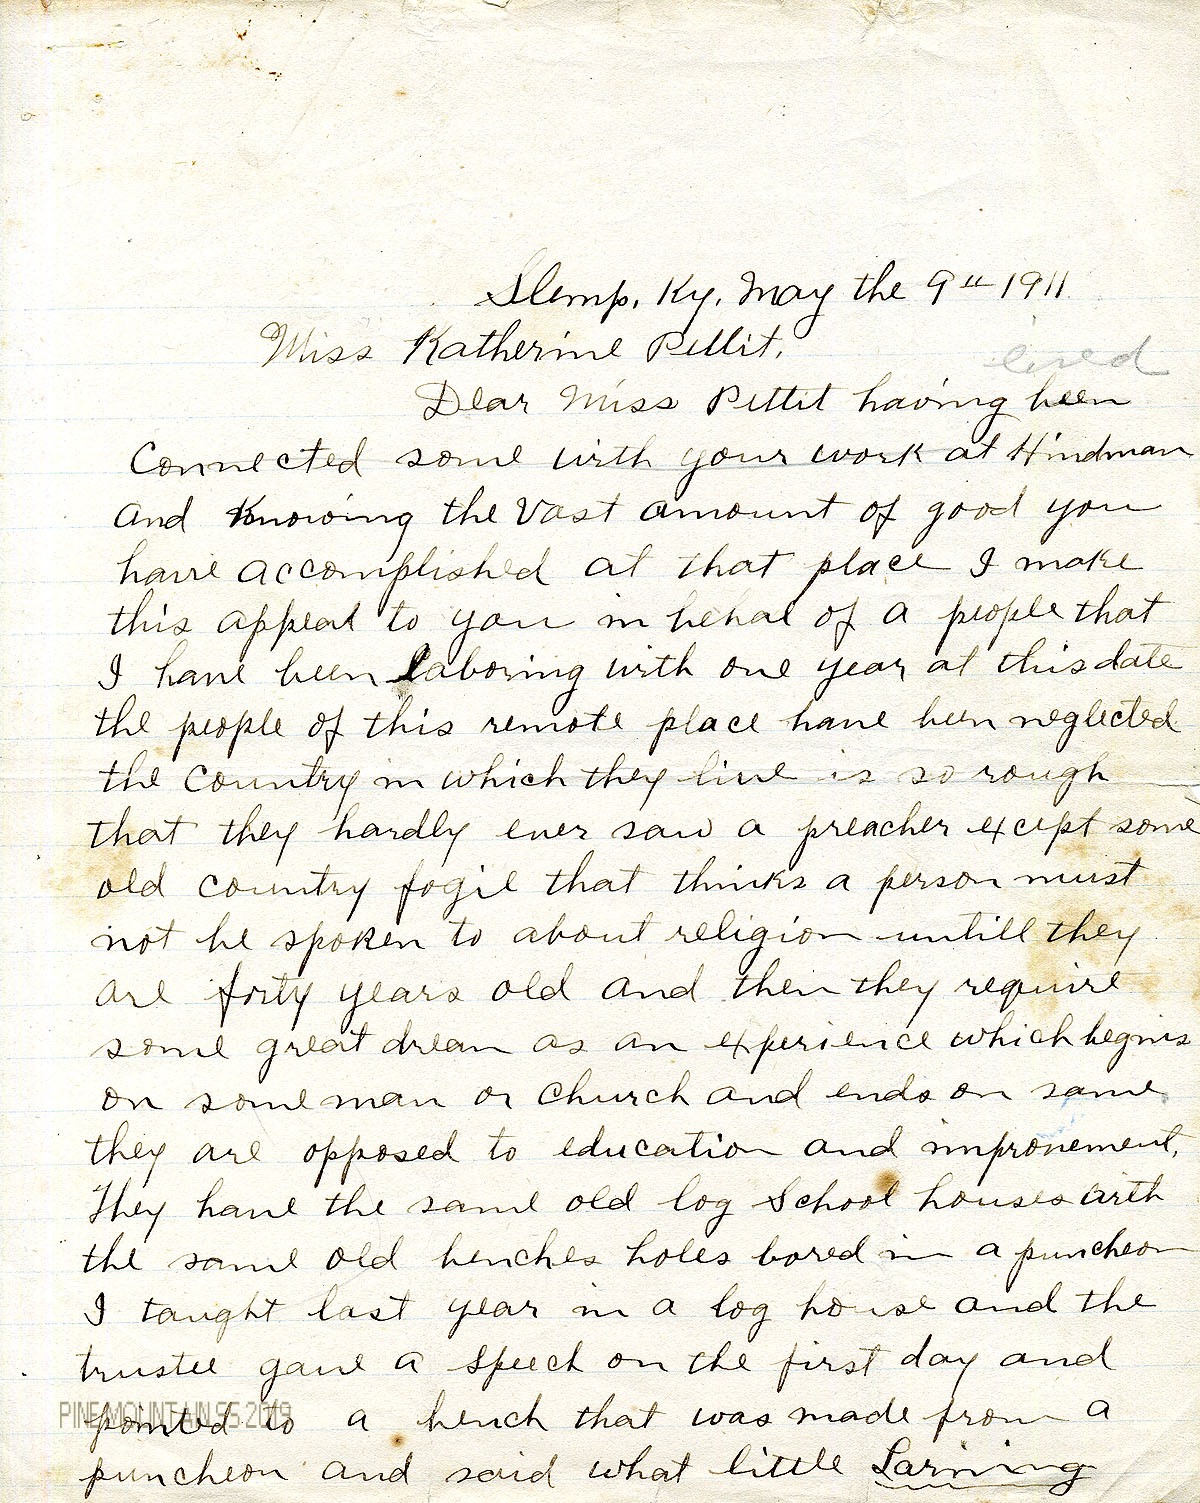 Slemp, Ky, May the 9th 1911
Miss Katherine Pettit,
lived
Dear Miss Pettit having been
Connected some with your work at Hindman
and Knowing the Vast amount of good you
have accomplished at that place I make
this appeal to you in behal of a people that
I have been laboring with one year at this date
the people of this remote place have been neglected
the Country in which they live is so rough
that they hardly ever saw a preacher except some
old country fogie that thinks a person must
not be spoken to about religion untill they
are forty years old and then they require
some great dream as an experience which begins
on some man or church and ends on same
they are opposed to education and improvement,
They have the same old log School houses with
the same old benches holes bored in a puncheon
I taught last year in a log house and the
trustee gave a speech on the first day and
pointed to a bench that was made from a
PINE MOUNTAIN SS 2019
puncheon and said what little Larning